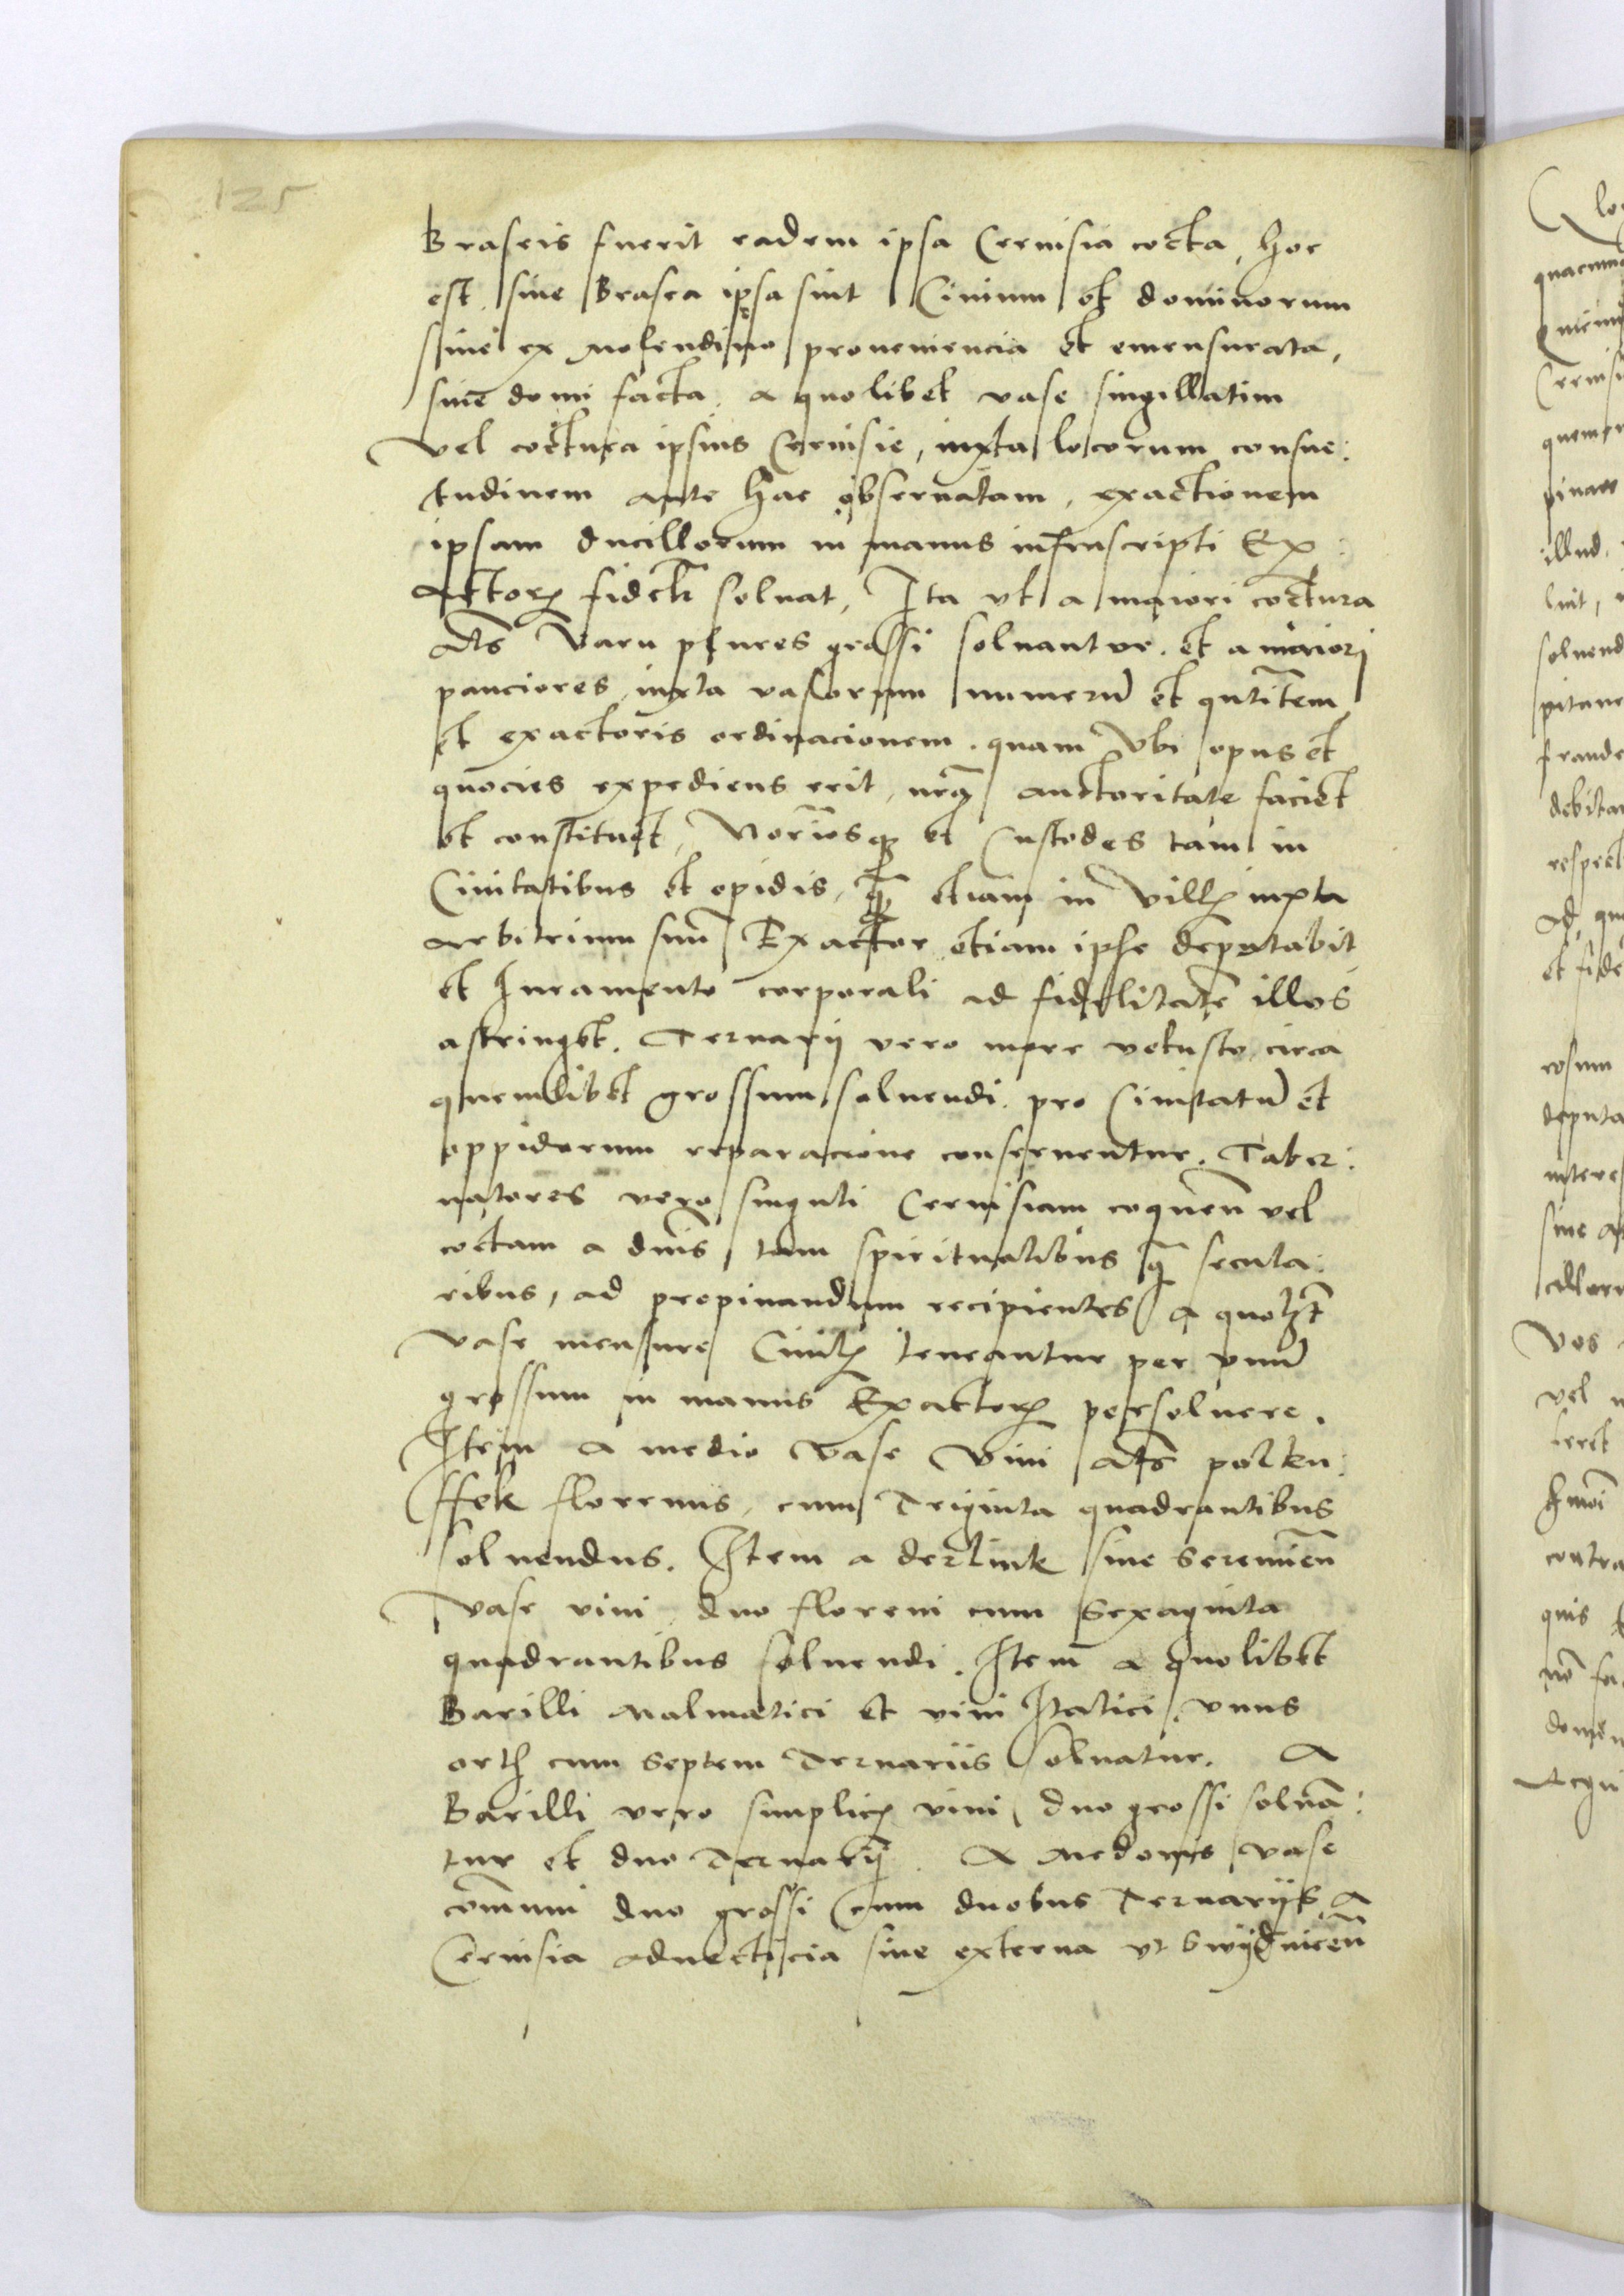 125
Braseis fuerit eadem ipsa Ceruisia cocta, hoc
est, siue Brasea ipsa sint Ciuium et dominorum
siue ex molendino proueniencia et emensurata,
siue domi facta. a quolibet vase singillatim
vel coctura ipsius Ceruisie, iuxta locorum consue:
tudinem ante hac obseruatam, exactionem
ipsam ducillorum in manus infrascripti Ex:
actorꝭ fidelr̃ soluat, Ita vt a maiori coctura
als̃ Varu plures grossi soluantur. et a miriori
pauciores, iuxta vasorum numerũ et qntitatem
et exactoris ordinacionem. quam Vbi opus et
quocies expediens erit, nrã auctoritate faciet
et constituet, Notariosqꝫ et Custodes tam in
Ciuitatibus et opidis, qꝫ̃ etiam in villꝭ iuxta
arbitrium suũ Exactor etiam ipse deputabit
et Iuramento corporali ad fidelitatẽ illos
astringet. Ternarij vero more vetusto circa
quemlibet grossum soluendi. pro Ciuitatũ et
oppidorum reparacione conseruentur. Taber:
natores vero singuli Ceruisiam coqueñ vel
coctam a dnis̃ tam spiritualibus q̃ secula:
ribus, ad propinandum recipientes a quolzt̃
vase mensure Ciuilꝭ teneantur per vnũ
grossum in manus Exactorꝭ persoluere.
Item a medio Vase Vini als̃ polku:
ffek florenus, cum Triginta quadrantibus
soluendus. Item a derlink siue seremieñ
vase vini duo floreni cum Sexaginta
quadrantibus soluendi. Item a quolibet
Barilli Malmatici et vini Italici, vnus
ortꝭ cum septem Ternariis soluatur. A
Barilli vero simplicꝭ vini, duo grossi soluã:
tur et duo Ternarij. A Medonis vase
com̃uni duo grossi cum duobus Ternarijs. A
Ceruisia aduecticia siue externa vt Swijdniceñ